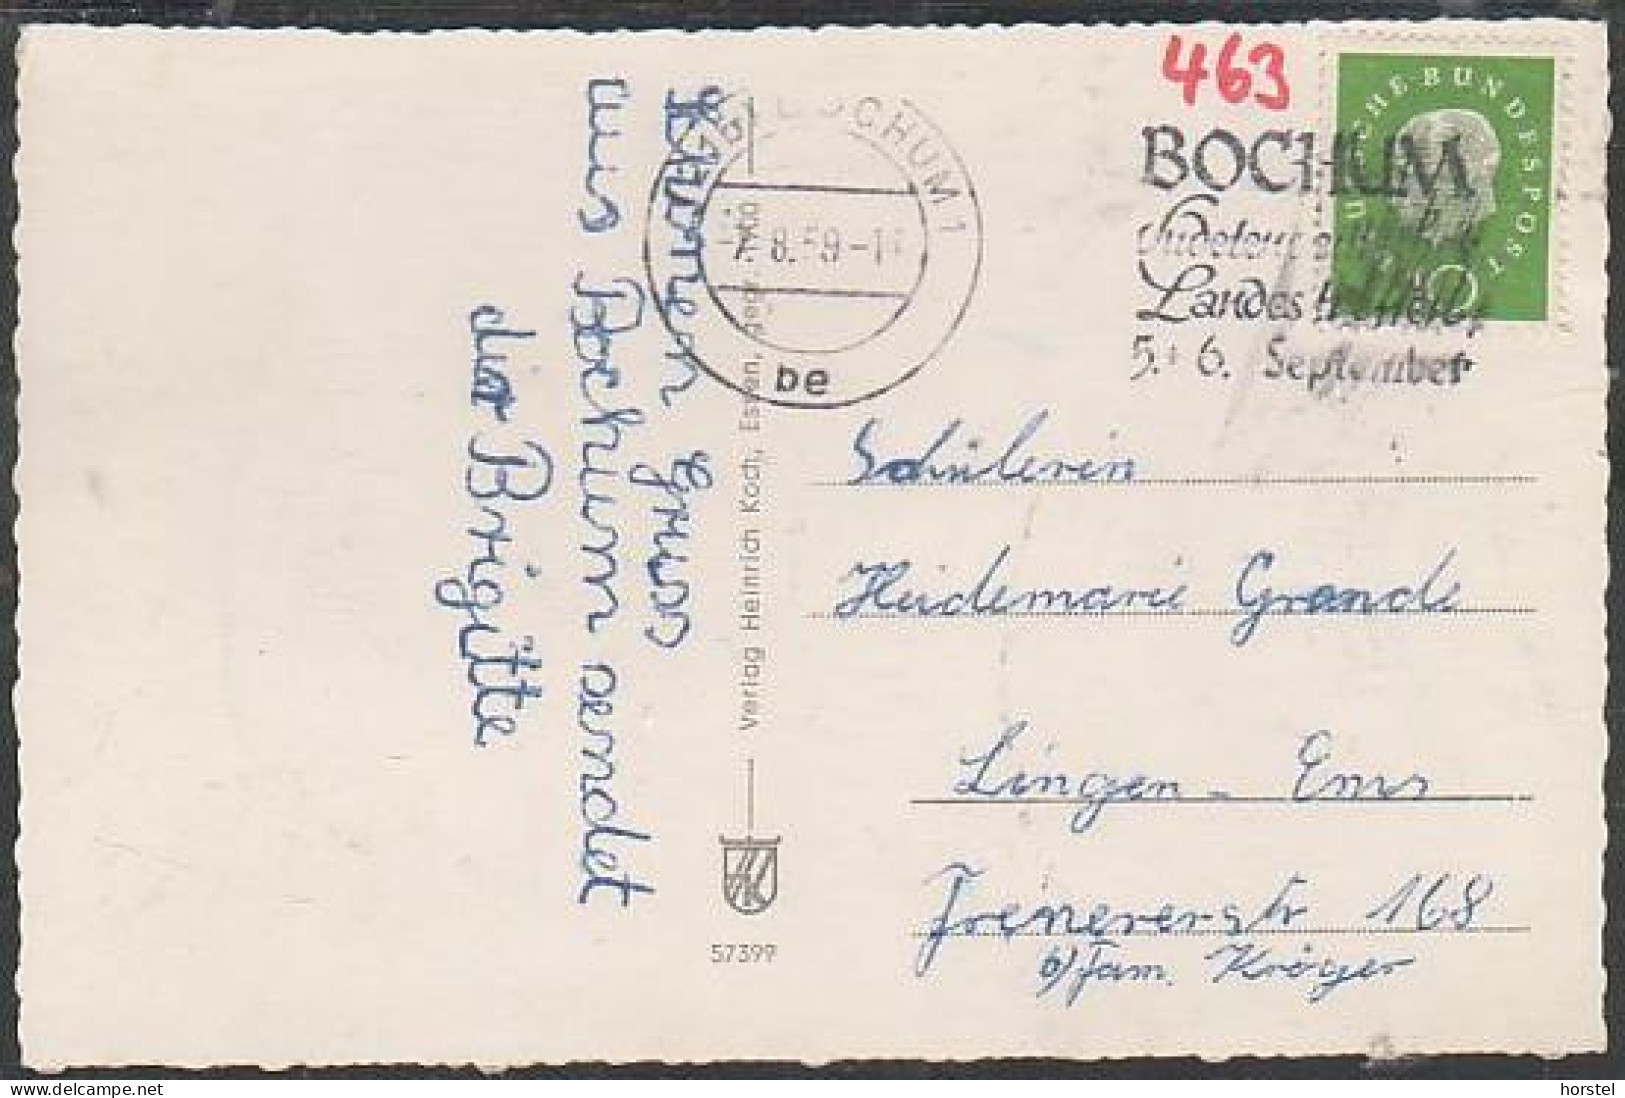 Einen Gruss
aus Bochum sendet
dir Brigitte
BOCHUM 1
-7.8.59-1
be
Verlag Heinrich Koch, Essen, gegr.
57399
463
BOCHUM
Landestreffen
5.+6. September
DEUTSCHE BUNDESPOST
10
Schülerin
Heidemarie Grande
Lingen - Ems
Frenererstr 168
b/ Fam. Kröger
horstel